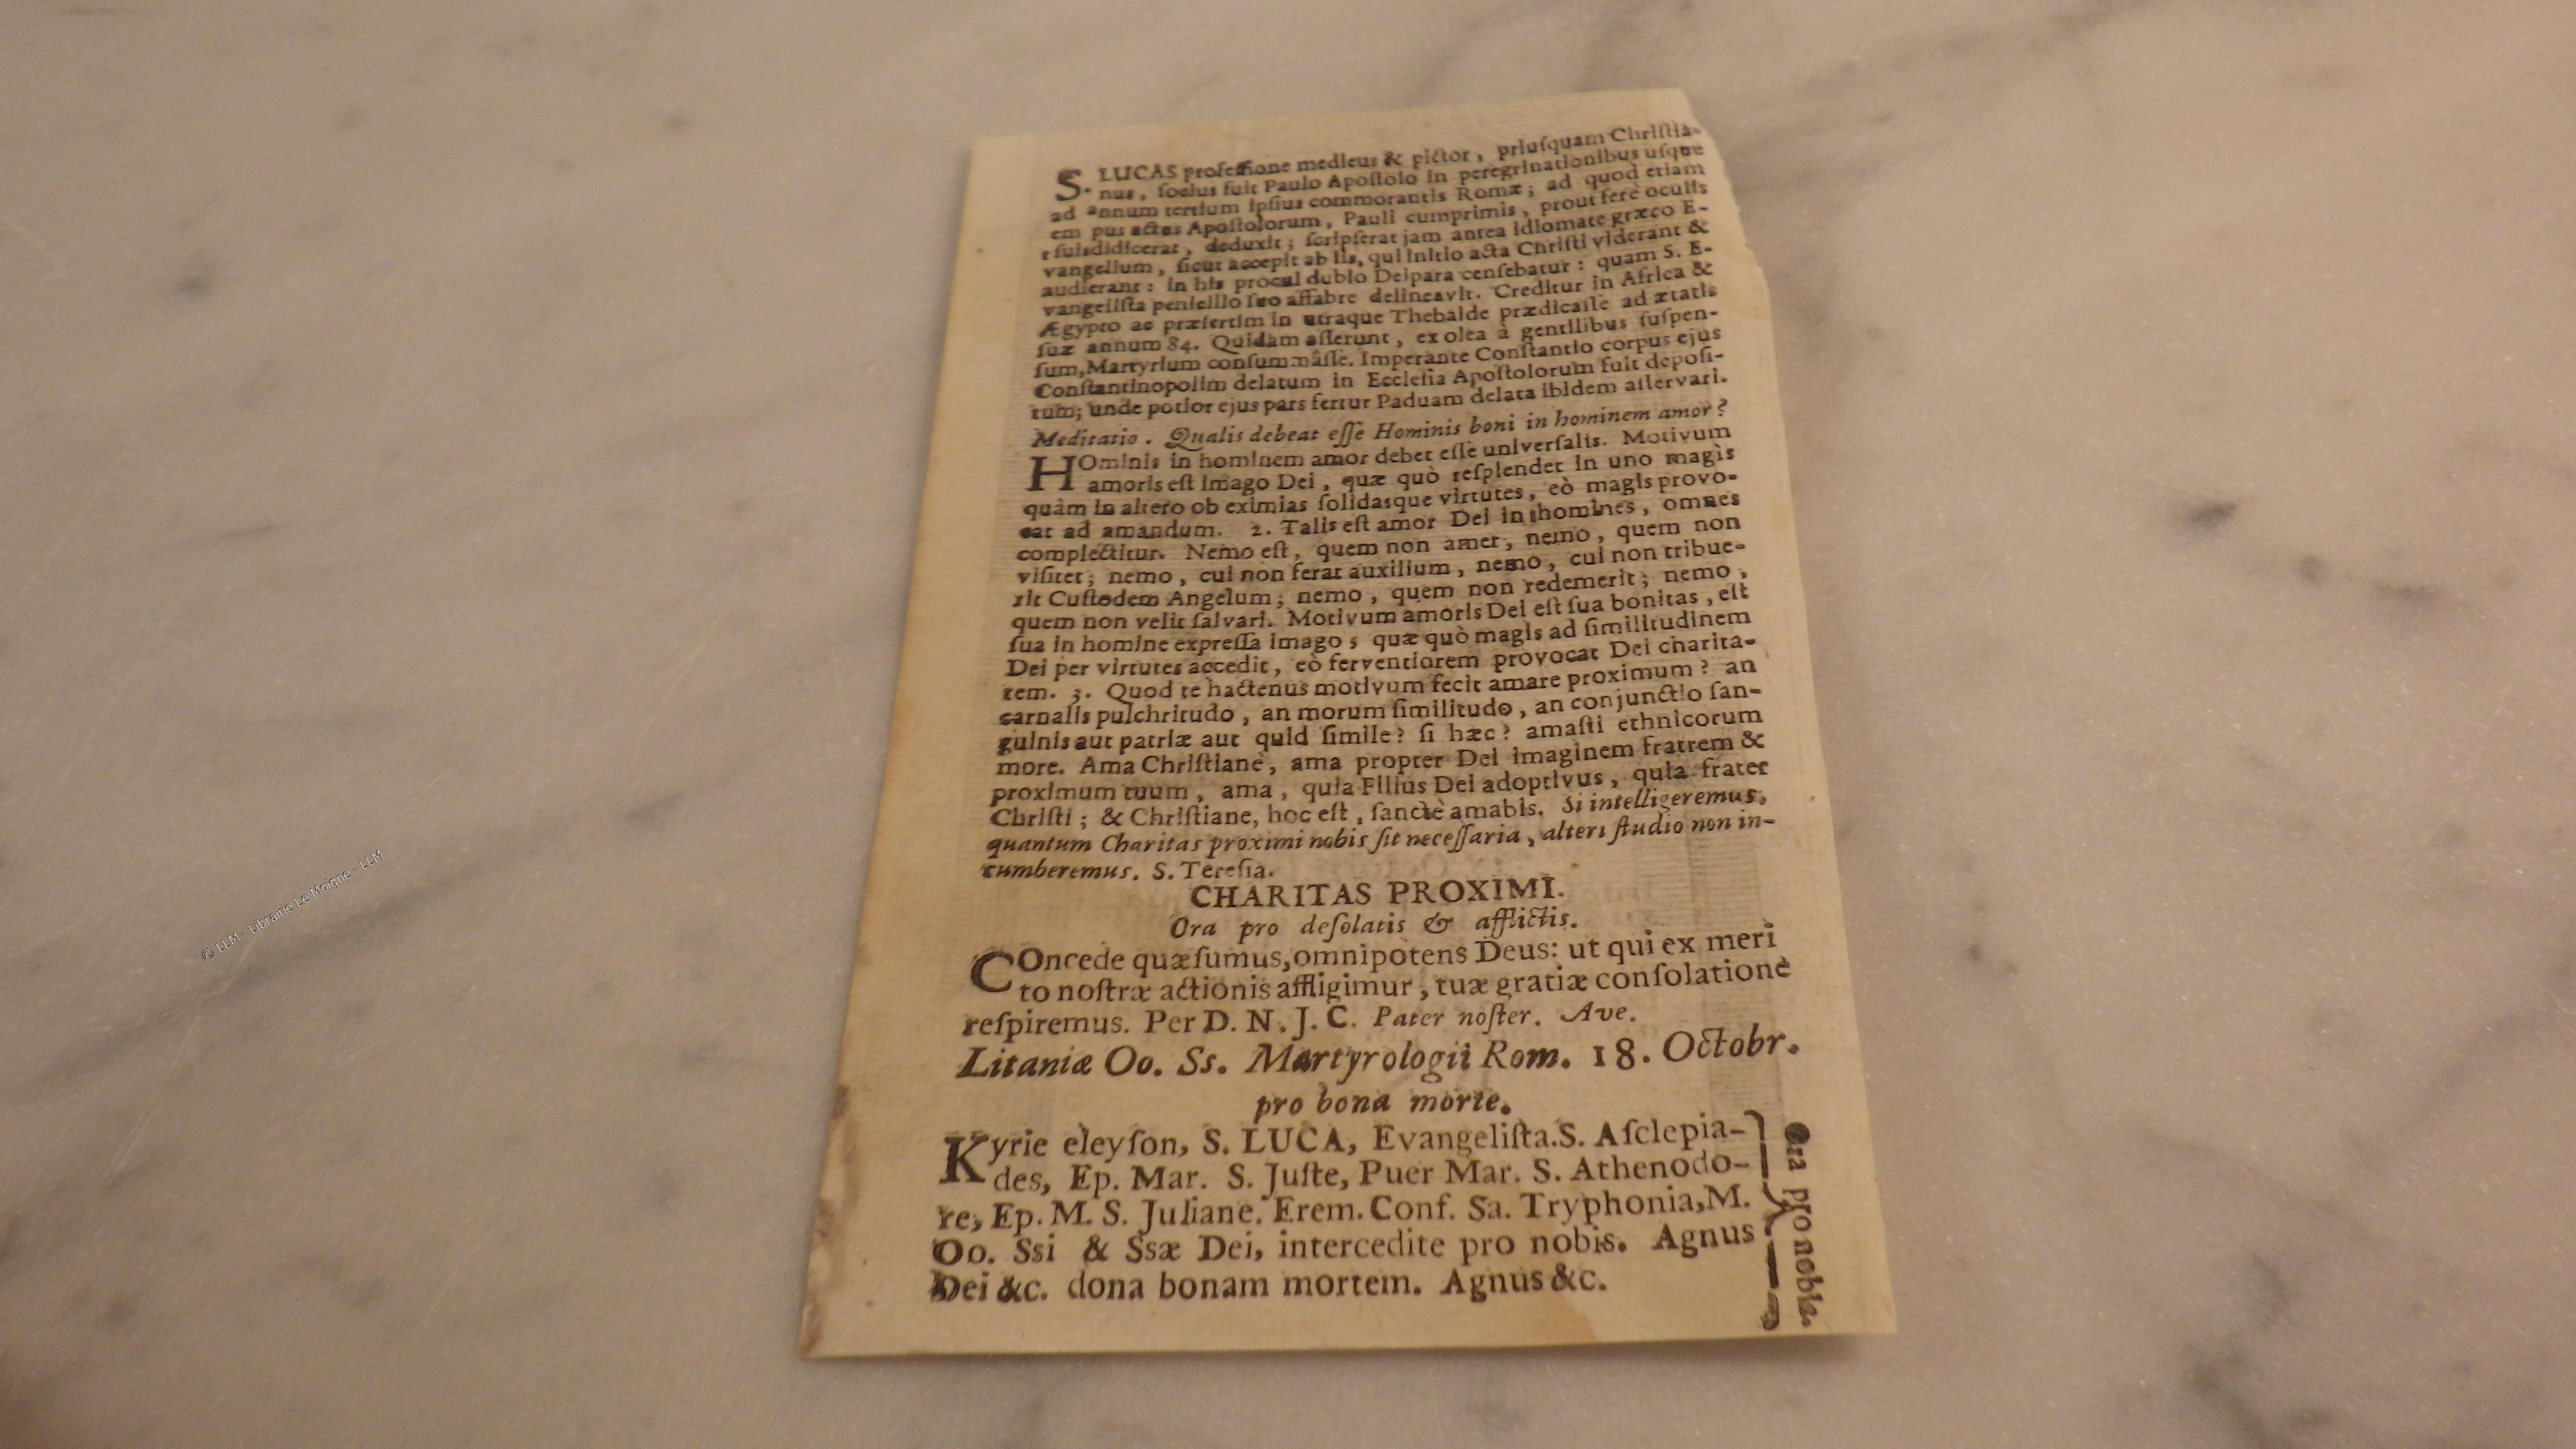 S. LUCAS profeſſione medicus & pictor, priuſquam Chriſtia-
nus, ſocius fuit Paulo Apoſtolo in peregrinationibus uſque
ad annum tertium ipſius commorantis Romæ; ad quod etiam
em pus actus Apoſtolorum, Pauli cumprimis, prout ferè oculis
t ſuisdidicerat, deduxit; ſcripſerat jam antea idiomate græco E-
vangelium, ſicut accepit ab iis, qui initio acta Chriſti viderant &
audierant: in his procul dubio Deipara cenſebatur: quam S. E-
vangeliſta penicillo ſuo affabre delineavit. Creditur in Africa &
Ægypto ac præſertim in utraque Thebaide prædicaſſe ad ætatis
ſuæ annum 84. Quidam aſſerunt, ex olea à gentilibus ſuſpen-
ſum, Martyrium conſummâſſe. Imperante Conſtantio corpus ejus
Conſtantinopolim delatum in Eccleſia Apoſtolorum fuit depoſi-
tum; unde potior ejus pars fertur Paduam delata ibidem aſſervari.
Meditatio. Qualis debeat eſſe Hominis boni in hominem amor?
HOminis in hominem amor debet eſſe univerſalis. Motivum
amoris eſt imago Dei, quæ quò reſplendet in uno magìs
quàm in altero ob eximias ſolidasque virtutes, eò magis provo-
cat ad amandum. 2. Talis eſt amor Dei in homines, omnes
complectitur. Nemo eſt, quem non amet, nemo, quem non
viſitet; nemo, cui non ferat auxilium, nemo, cui non tribue-
rit Cuſtodem Angelum; nemo, quem non redemerit; nemo,
quem non velit ſalvari. Motivum amoris Dei eſt ſua bonitas, eſt
ſua in homine expreſſa imago; quæ quò magis ad ſimilitudinem
Dei per virtutes accedit, eò ferventiorem provocat Dei charita-
tem. 3. Quod te hactenus motivum fecit amare proximum? an
carnalis pulchritudo, an morum ſimilitudo, an conjunctio ſan-
guinis aut patriæ aut quid ſimile? ſi hæc? amaſti ethnicorum
more. Ama Chriſtianè, ama propter Dei imaginem fratrem &
proximum tuum, ama, quia Filius Dei adoptivus, quia frater
Chriſti; & Chriſtiane, hoc eſt, ſanctè amabis. Si intelligeremus,
quantum Charitas proximi nobis ſit neceſſaria, alteri ſtudio non in-
cumberemus. S. Tereſia.
CHARITAS PROXIMI.
Ora pro deſolatis & afflictis.
COncede quæſumus, omnipotens Deus: ut qui ex meri
to noſtræ actionis affligimur, tuæ gratiæ conſolatione
reſpiremus. Per D. N. J. C. Pater noſter. Ave.
Litaniæ Oo. Ss. Martyrologii Rom. 18. Octobr.
pro bona morte.
Kyrie eleyſon, S. LUCA, Evangeliſta. S. Aſclepia-
des, Ep. Mar. S. Juſte, Puer Mar. S. Athenodo-
re, Ep. M. S. Juliane. Erem. Conf. Sa. Tryphonia, M.
Oo. Ssi & Ssæ Dei, intercedite pro nobis. Agnus
Dei &c. dona bonam mortem. Agnus &c.
Ora pro nobis.
© LLM - Librairie Le Moigne - LLM